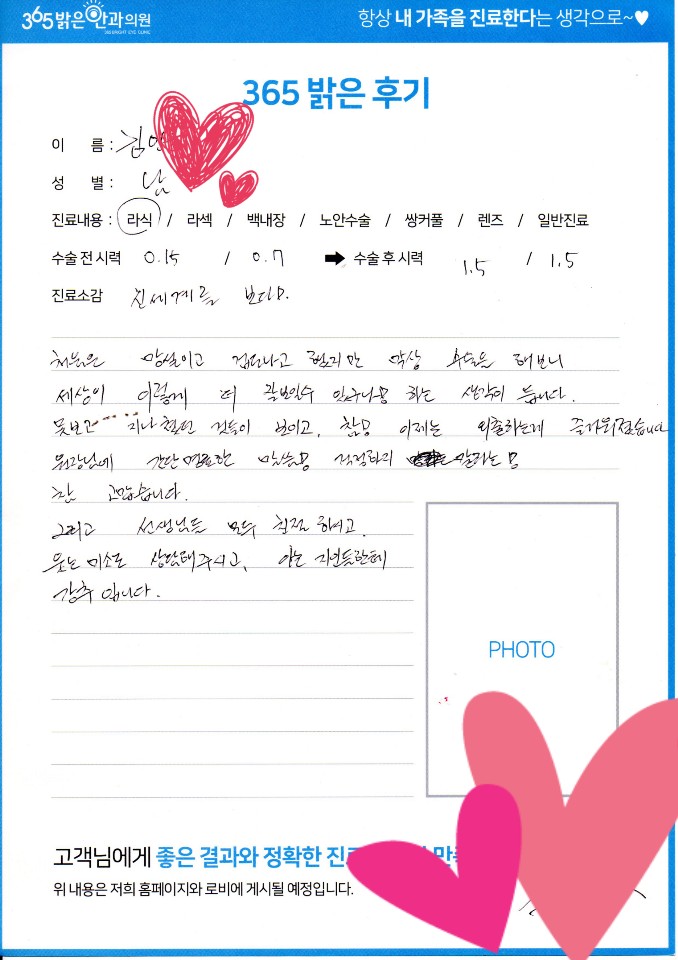 365밝은안과의원
365 BRIGHT EYE CLINIC
항상 내 가족을 진료한다는 생각으로~♥
365 밝은 후기
이 름 : 김
성 별 : 남
진료내용 : 라식 / 라섹 / 백내장 / 노안수술 / 쌍커풀 / 렌즈 / 일반진료
수술 전 시력 0.15 / 0.7 ➡ 수술 후 시력 1.5 / 1.5
진료소감 신세계를 보다.
처음은 망설이고 겁난다고 했지만 막상 수술을 해보니
세상이 이렇게 더 잘보일수 있구나 하는 생각이 듭니다.
못보고 지나쳤던 것들이 보이고, 참 이제는 외출하는게 즐거워졌습니다
원장님에 간단 명료한 말씀 걱정하지 말라는
참 고맙습니다.
그리고 선생님들 모두 친절하시고,
웃는 미소로 상담해주시고, 아는 지인들한테
강추 입니다.
PHOTO
고객님에게 좋은 결과와 정확한 진료
위 내용은 저희 홈페이지와 로비에 게시될 예정입니다.